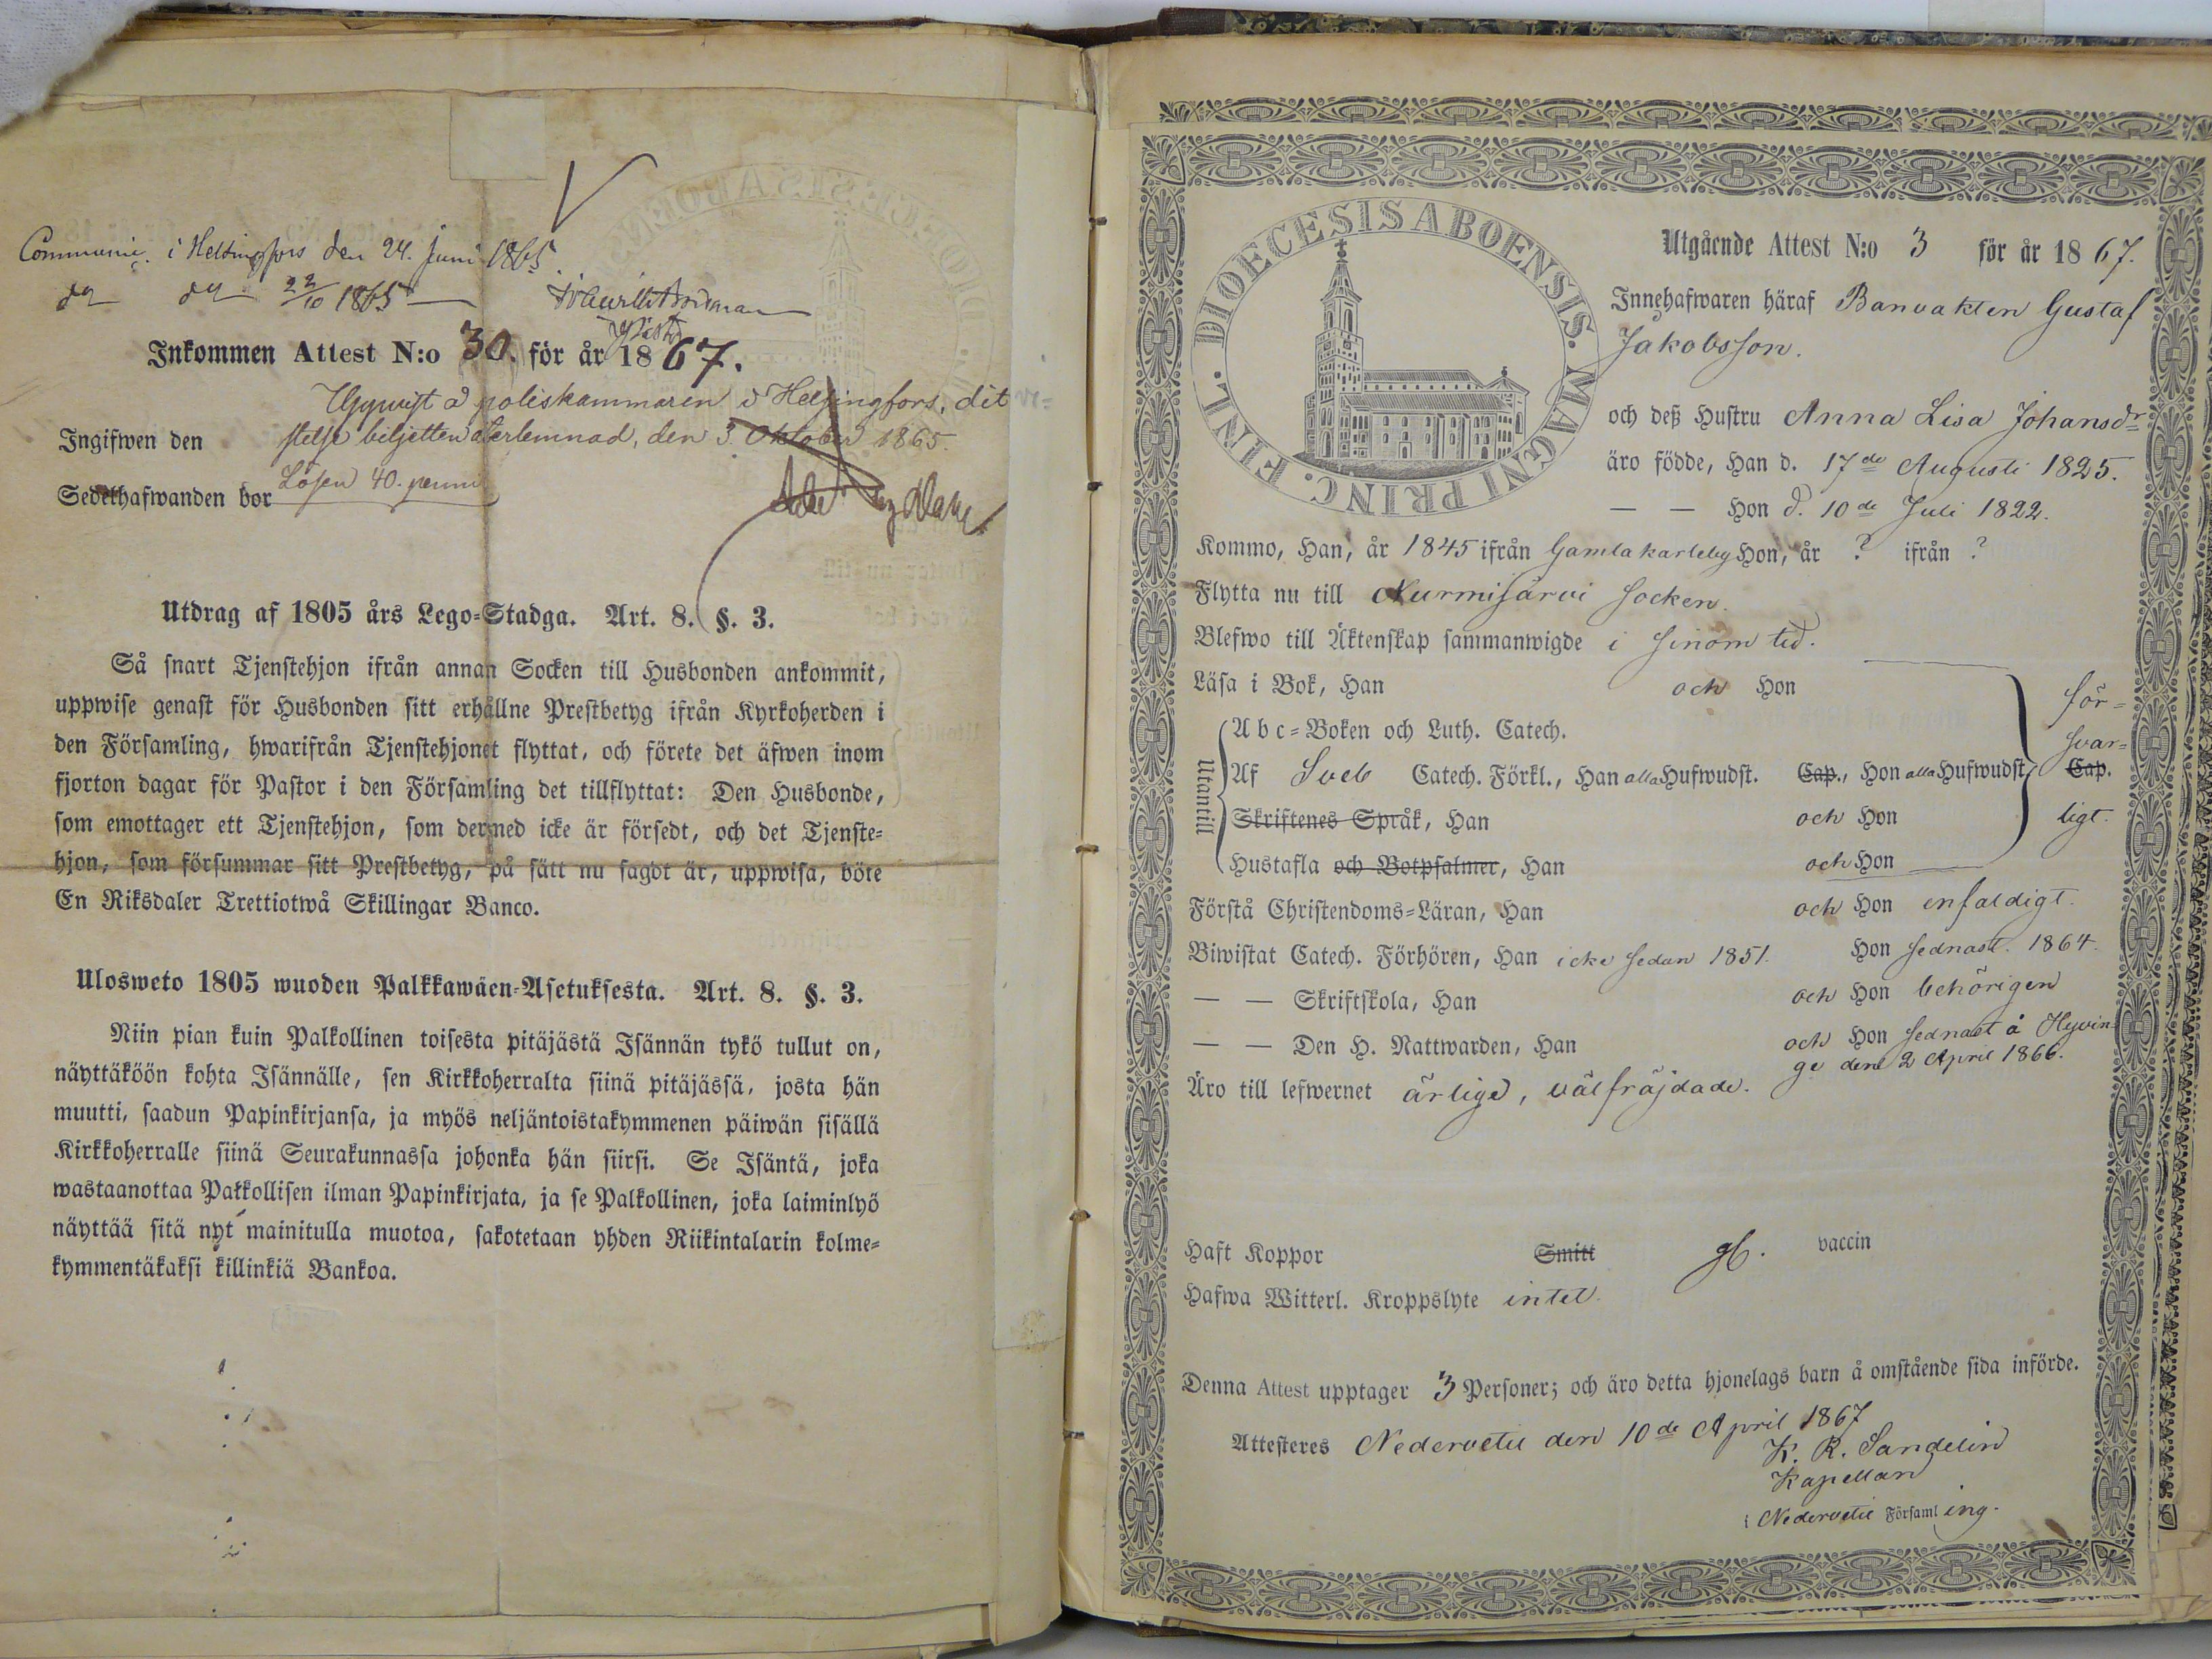 Communic. i Helsingfors den 24. Juni 1865
d:o d:o 22/10 1865
Inkommen Attest N:o 30. för år 1867.
Uppvist å poliskammaren i Helsingfors, dit
Ingifwen den
biljetten återlemnad, den 3. Oktober 1865.
Sedelhafwanden bor Lösen 40. penni
Utdrag af 1805 års Lego-Stadga. Art. 8. §. 3.
Så snart Tjenstehjon ifrån annan Socken till Husbonden ankommit,
uppwise genast för Husbonden sitt erhållne Prestbetyg ifrån Kyrkoherden i
den Församling, hwarifrån Tjenstehjonet flyttat, och förete det äfwen inom
fjorton dagar för Pastor i den Församling det tillflyttat: Den Husbonde,
som emottager ett Tjenstehjon, som dermed icke är försedt, och det Tjenste-
hjon, som försummar sitt Prestbetyg, på sätt nu sagdt är, uppwisa, böte
En Riksdaler Trettiotwå Skillingar Banco.
Ulosweto 1805 wuoden Palkkawäen-Asetuksesta. Art. 8. §. 3.
Niin pian kuin Palkollinen toisesta pitäjästä Isännän tykö tullut on,
näyttäköön kohta Isännälle, sen Kirkkoherralta siinä pitäjässä, josta hän
muutti, saadun Papinkirjansa, ja myös neljäntoistakymmenen päiwän sisällä
Kirkkoherralle siinä Seurakunnassa johonka hän siirsi. Se Isäntä, joka
wastaanottaa Palkollisen ilman Papinkirjata, ja se Palkollinen, joka laiminlyö
näyttää sitä nyt mainitulla muotoa, sakotetaan yhden Riikintalarin kolme-
kymmentäkaksi killinkiä Bankoa.
DIOECESIS ABOENSIS. MAGNI PRINC. FINL.
Utgående Attest N:o 3 för år 1867.
Innehafwaren häraf Banvakten Gustaf
Jakobsson.
och deß Hustru Anna Lisa Johansdr
äro födde, Han d. 17de Augusti 1825.
— — Hon d. 10de Juli 1822.
Kommo, Han, år 1845 ifrån Gamlakarleby Hon, år ? ifrån ?
Flytta nu till Nurmijärvi socken.
Blefwo till Äktenskap sammanwigde i sinom tid.
Läsa i Bok, Han och Hon
för-
Abc-Boken och Luth. Catech.
svar-
Utantill
Af Sveb Catech. Förkl., Han alla Hufwudst. Cap., Hon alla Hufwudst. Cap.
Skriftenes Språk, Han och Hon ligt.
Hustafla och Botpsalmer, Han och Hon
Förstå Christendoms-Läran, Han och Hon enfaldigt.
Biwistat Catech. Förhören, Han icke sedan 1851. Hon sednast. 1864.
— — Skriftskola, Han och Hon behörigen
— — Den H. Nattwarden, Han och Hon sednast å Hyvin-
ge den 2 April 1866.
Äro till lefwernet ärlige, välfräjdade.
Haft Koppor Smitt gb. vaccin
Hafwa Witterl. Kroppslyte intet.
Denna Attest upptager 3 Personer; och äro detta hjonelags barn å omstående sida införde.
Attesteres Nedervetil den 10de April 1867
K. R. Sandelin
Kapellan
i Nedervetil Församling.